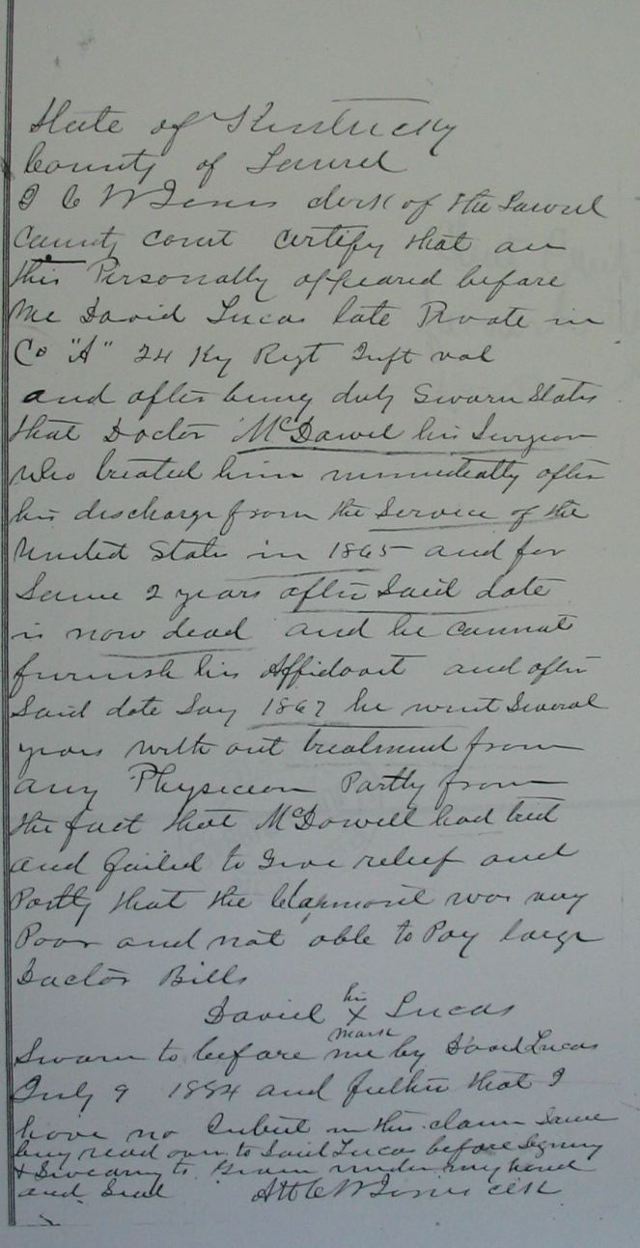 State of Kentucky
County of Laurel
I C W Jones clerk of the Laurel
County Court Certify that on
this Personally appeared before
me David Lucas late Private in
Co "A" 24 Ky Regt Inft vol
and after being duly Sworn States
that Doctor McDowel his Surgeon
who treated him immediatly after
his discharge from the Service of the
United State in 1865 and for
Some 2 years after Said date
is now dead and he cannot
furnish his Affidavit and after
Said date Say 1867 he went Several
years with out treatment from
any Physician Partly from
the fact that McDowell had tried
and failed to give relief and
Partly that the was very
Poor and not able to Pay large
Doctor Bills
David his X mark Lucas
Sworn to before me by David Lucas
July 9 1884 and further that I
have no in this claim Same
being read over to Said Lucas before Signing
& Swearing to Given under my hand
and Seal Att C W Jones clk